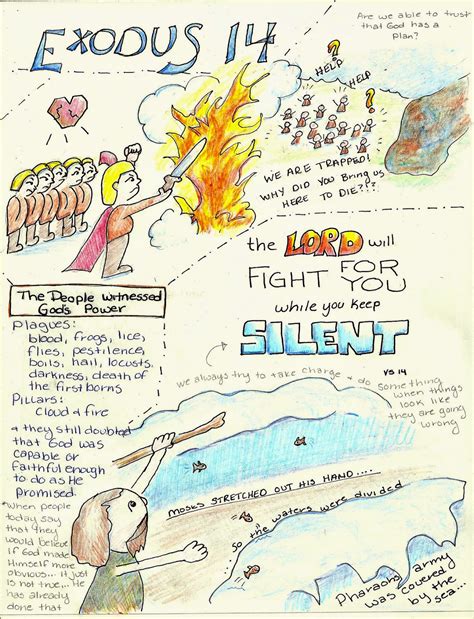 EXODUS 14
Are we able to trust
that God has a
Plan?
?
HELP
HELP
?
WE ARE TRAPPED!
WHY DID YOU BRING US
HERE TO DIE?!?
the LORD will
FIGHT FOR
YOU
while you keep
SILENT
VS 14
we always try to take charge & do something
when things
look like
they are going
wrong
The People witnessed
God's Power
Plagues:
blood, frogs, lice,
flies, pestilence,
boils, hail, locusts,
darkness, death of
the first borns
Pillars:
cloud & fire
& they still doubted
that God was
capable or
faithful enough
to do as He
Promised.
*when people
today say
that they
would believe
if God made
Himself more
obvious... it just
is not true... He
has already
done that
MOSES STRETCHED OUT HIS HAND....
So the waters were divided
Pharaohs army
was covered
by the
sea...